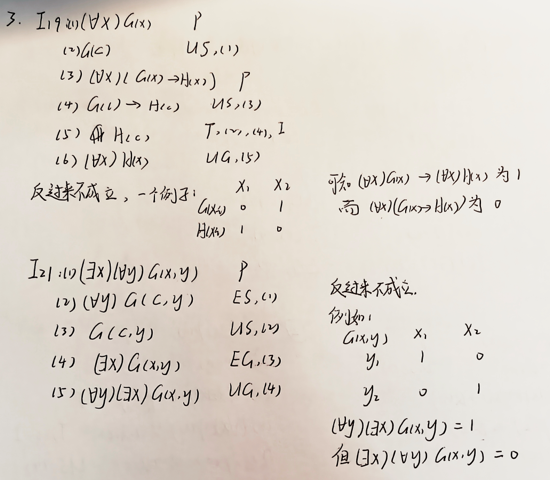 3. I19:(1)(∀x)G(x) P
(2)G(c) US,(1)
(3)(∀x)(G(x)→H(x)) P
(4)G(c)→H(c) US,(3)
(5) H(c) T,(2),(4),I
(6)(∀x)H(x) UG,(5)
反过来不成立,一个例子:
x1 x2
G(xi) 0 1
H(xi) 1 0
可知(∀x)G(x)→(∀x)H(x)为1
而(∀x)(G(x)→H(x))为0
I21:(1)(∃x)(∀y)G(x,y) P
(2)(∀y)G(c,y) ES,(1)
(3) G(c,y) US,(2)
(4) (∃x)G(x,y) EG,(3)
(5)(∀y)(∃x)G(x,y) UG,(4)
反过来不成立.
例如:
G(x,y) x1 x2
y1 1 0
y2 0 1
(∀y)(∃x)G(x,y)=1
但(∃x)(∀y)G(x,y)=0